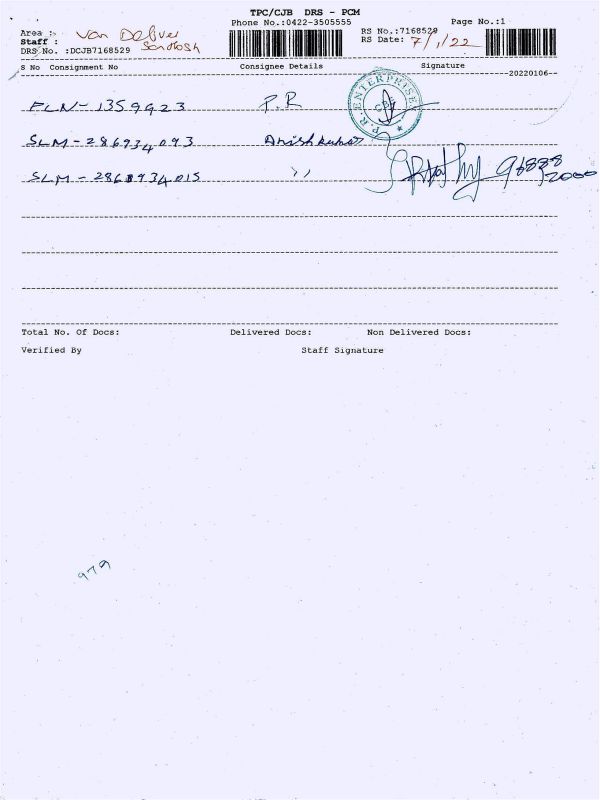 TPC/CJB DRS - PCM
Phone No.:0422-3505555 Page No.:1
Area : Van Deliver
Staff : Santosh
DRS No. :DCJB7168529
RS No.:7168529
RS Date: 7/1/22
S No Consignment No Consignee Details Signature
--20220106--
FLN-1359923 P.R
P.R. ENTERPRISE
CBE
SLM-286934093 Anishkumar
SLM-286934015 ,,
98888
2000
Total No. Of Docs: Delivered Docs: Non Delivered Docs:
Verified By Staff Signature
979